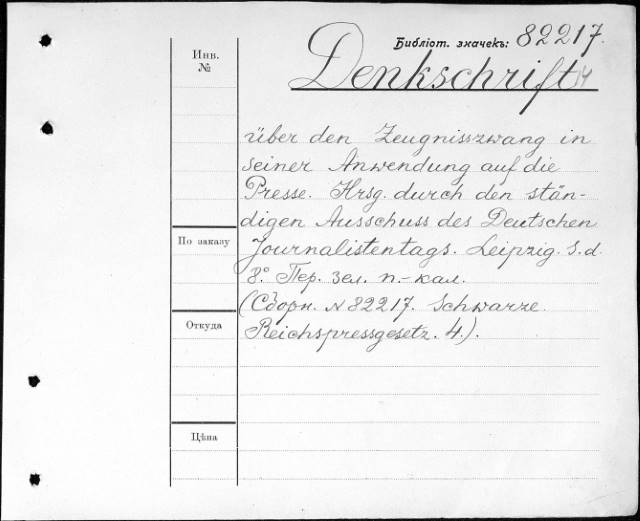 Библіот. значекъ: 82217.
Инв.
№
Denkschrift
über den Zeugnisszwang in
seiner Anwendung auf die
Presse. Hrsg. durch den stän-
digen Ausschuss des Deutschen
По заказу
Journalistentags. Leipzig. S. d.
8° Пер. зел. п.-кал.
(Сборн. № 82217. Schwarze.
Откуда
Reichspressgesetz. 4.).
Цѣна